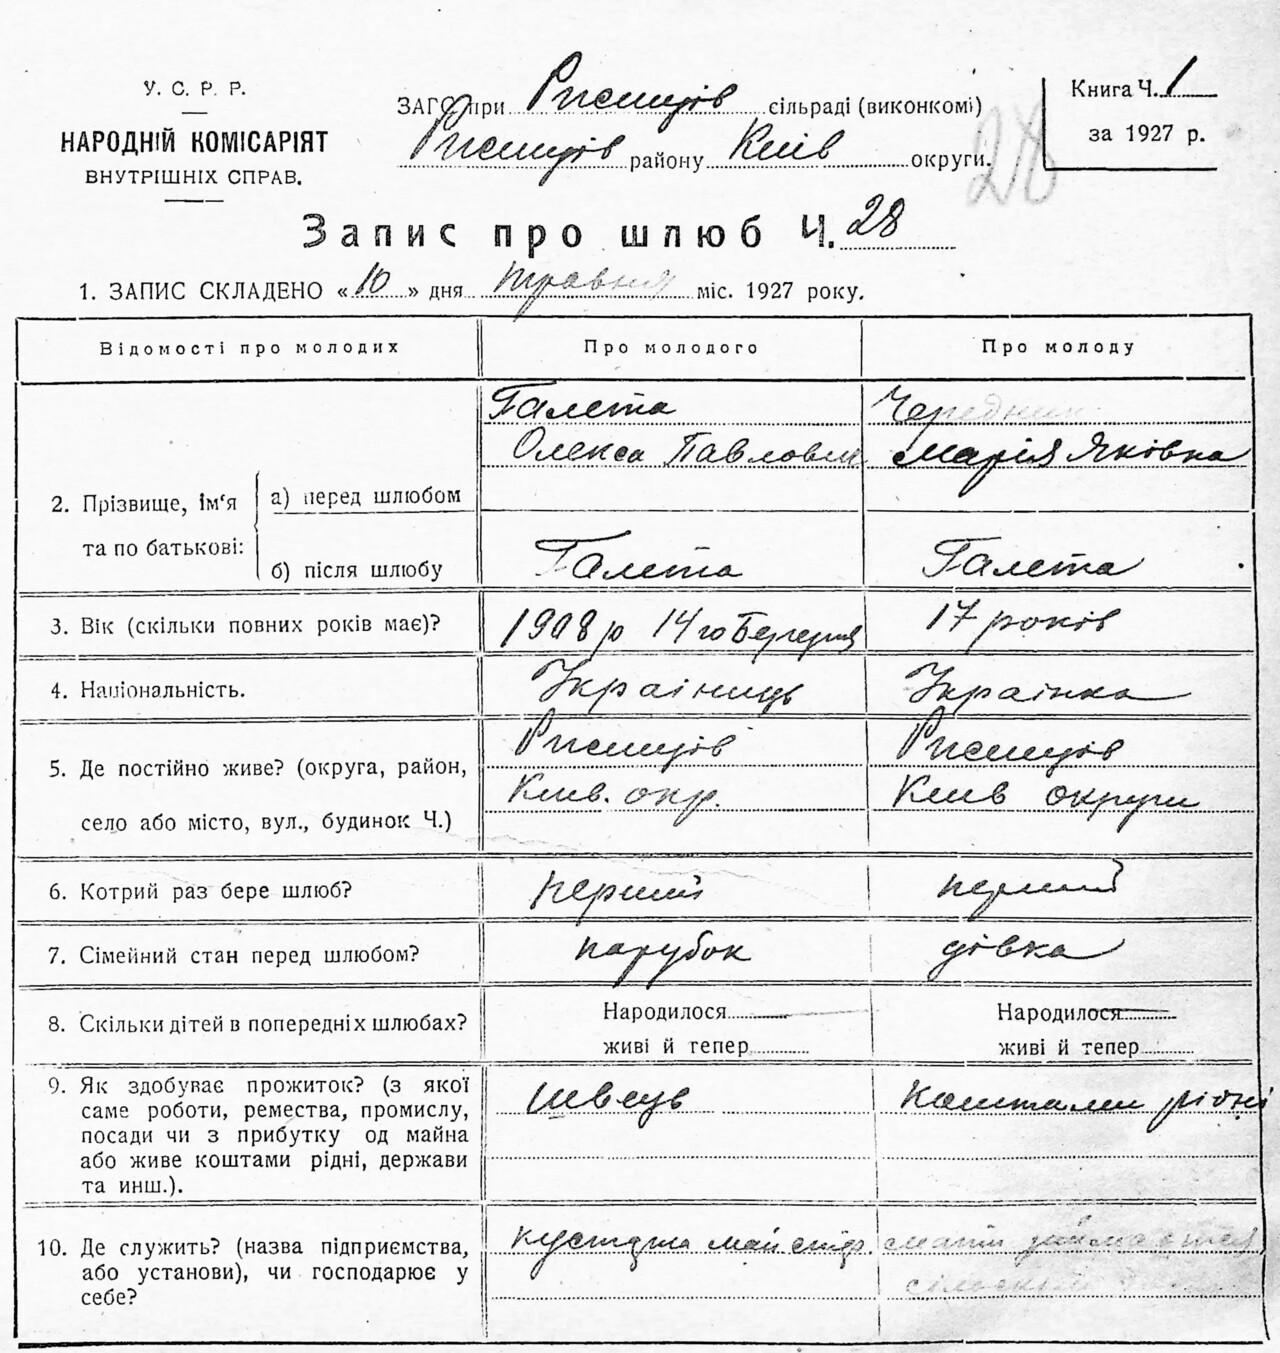 У. С. Р. Р.
НАРОДНІЙ КОМІСАРІЯТ
ВНУТРІШНІХ СПРАВ.
ЗАГС при Ржищів сільраді (виконкомі)
Ржищів району Київ округи.
Книга Ч. 1
за 1927 р.
28
Запис про шлюб Ч. 28
1. ЗАПИС СКЛАДЕНО «10» дня травня міс. 1927 року.
Відомості про молодих
Про молодого
Про молоду
2. Прізвище, ім'я та по батькові:
а) перед шлюбом
Галета
Олекса Павлович
Чередник
Марія Яківна
б) після шлюбу
Галета
Галета
3. Вік (скільки повних років має)?
1908 р 14го
17 років
4. Національність.
Україниць
Українка
5. Де постійно живе? (округа, район,
село або місто, вул., будинок Ч.)
Ржищів
Київ. окр.
Ржищів
Київ округи
6. Котрий раз бере шлюб?
перший
перший
7. Сімейний стан перед шлюбом?
парубок
дівка
8. Скільки дітей в попередніх шлюбах?
Народилося
живі й тепер
Народилося
живі й тепер
9. Як здобуває прожиток? (з якої
саме роботи, ремества, промислу,
посади чи з прибутку од майна
або живе коштами рідні, держави
та инш.).
швець
Коштами рідні
10. Де служить? (назва підприємства,
або установи), чи господарює у
себе?